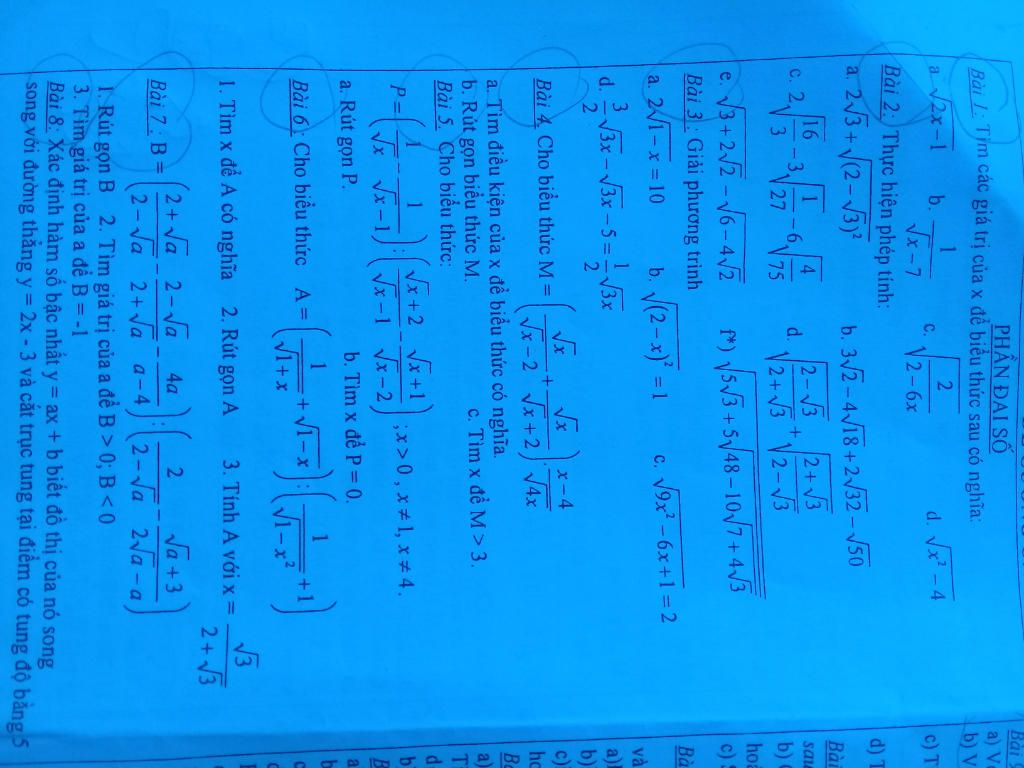 PHẦN ĐẠI SỐ
Bài 1: Tìm các giá trị của x để biểu thức sau có nghĩa:
a. √(2x − 1)    b. 1/√(x − 7)    c. √(2/(2 − 6x))    d. √(x² − 4)
Bài 2: Thực hiện phép tính:
a. 2√3 + √((2 − √3)²)    b. 3√2 − 4√18 + 2√32 − √50
c. 2√(16/3) − 3√(1/27) − 6√(4/75)    d. √((2 − √3)/(2 + √3)) + √((2 + √3)/(2 − √3))
e. √(3 + 2√2) − √(6 − 4√2)    f*) √(5√3 + 5√(48 − 10√(7 + 4√3)))
Bài 3: Giải phương trình
a. 2√(1 − x) = 10    b. √((2 − x)²) = 1    c. √(9x² − 6x + 1) = 2
d. 3/2 √3x − √3x − 5 = 1/2 √3x
Bài 4: Cho biểu thức M = (√x/(√x − 2) + √x/(√x + 2)) . (x − 4)/√4x
a. Tìm điều kiện của x để biểu thức có nghĩa.
b. Rút gọn biểu thức M.    c. Tìm x để M > 3.
Bài 5. Cho biểu thức:
P = (1/√x − 1/(√x − 1)) : ((√x + 2)/(√x − 1) − (√x + 1)/(√x − 2)) ; x > 0, x ≠ 1, x ≠ 4.
a. Rút gọn P.    b. Tìm x để P = 0.
Bài 6: Cho biểu thức A = (1/√(1 + x) + √(1 − x)) : (1/√(1 − x²) + 1)
1. Tìm x để A có nghĩa    2. Rút gọn A    3. Tính A với x = √3/(2 + √3)
Bài 7: B = ((2 + √a)/(2 − √a) − (2 − √a)/(2 + √a) − 4a/(a − 4)) : (2/(2 − √a) − (√a + 3)/(2√a − a))
1. Rút gọn B    2. Tìm giá trị của a để B > 0; B < 0
3. Tìm giá trị của a để B = -1
Bài 8: Xác định hàm số bậc nhất y = ax + b biết đồ thị của nó song
song với đường thẳng y = 2x - 3 và cắt trục tung tại điểm có tung độ bằng 5
a) V
b) V
c) T
d) T
Bài
sau
b)
hoà
c)
Bà
và
a)
b)
c)